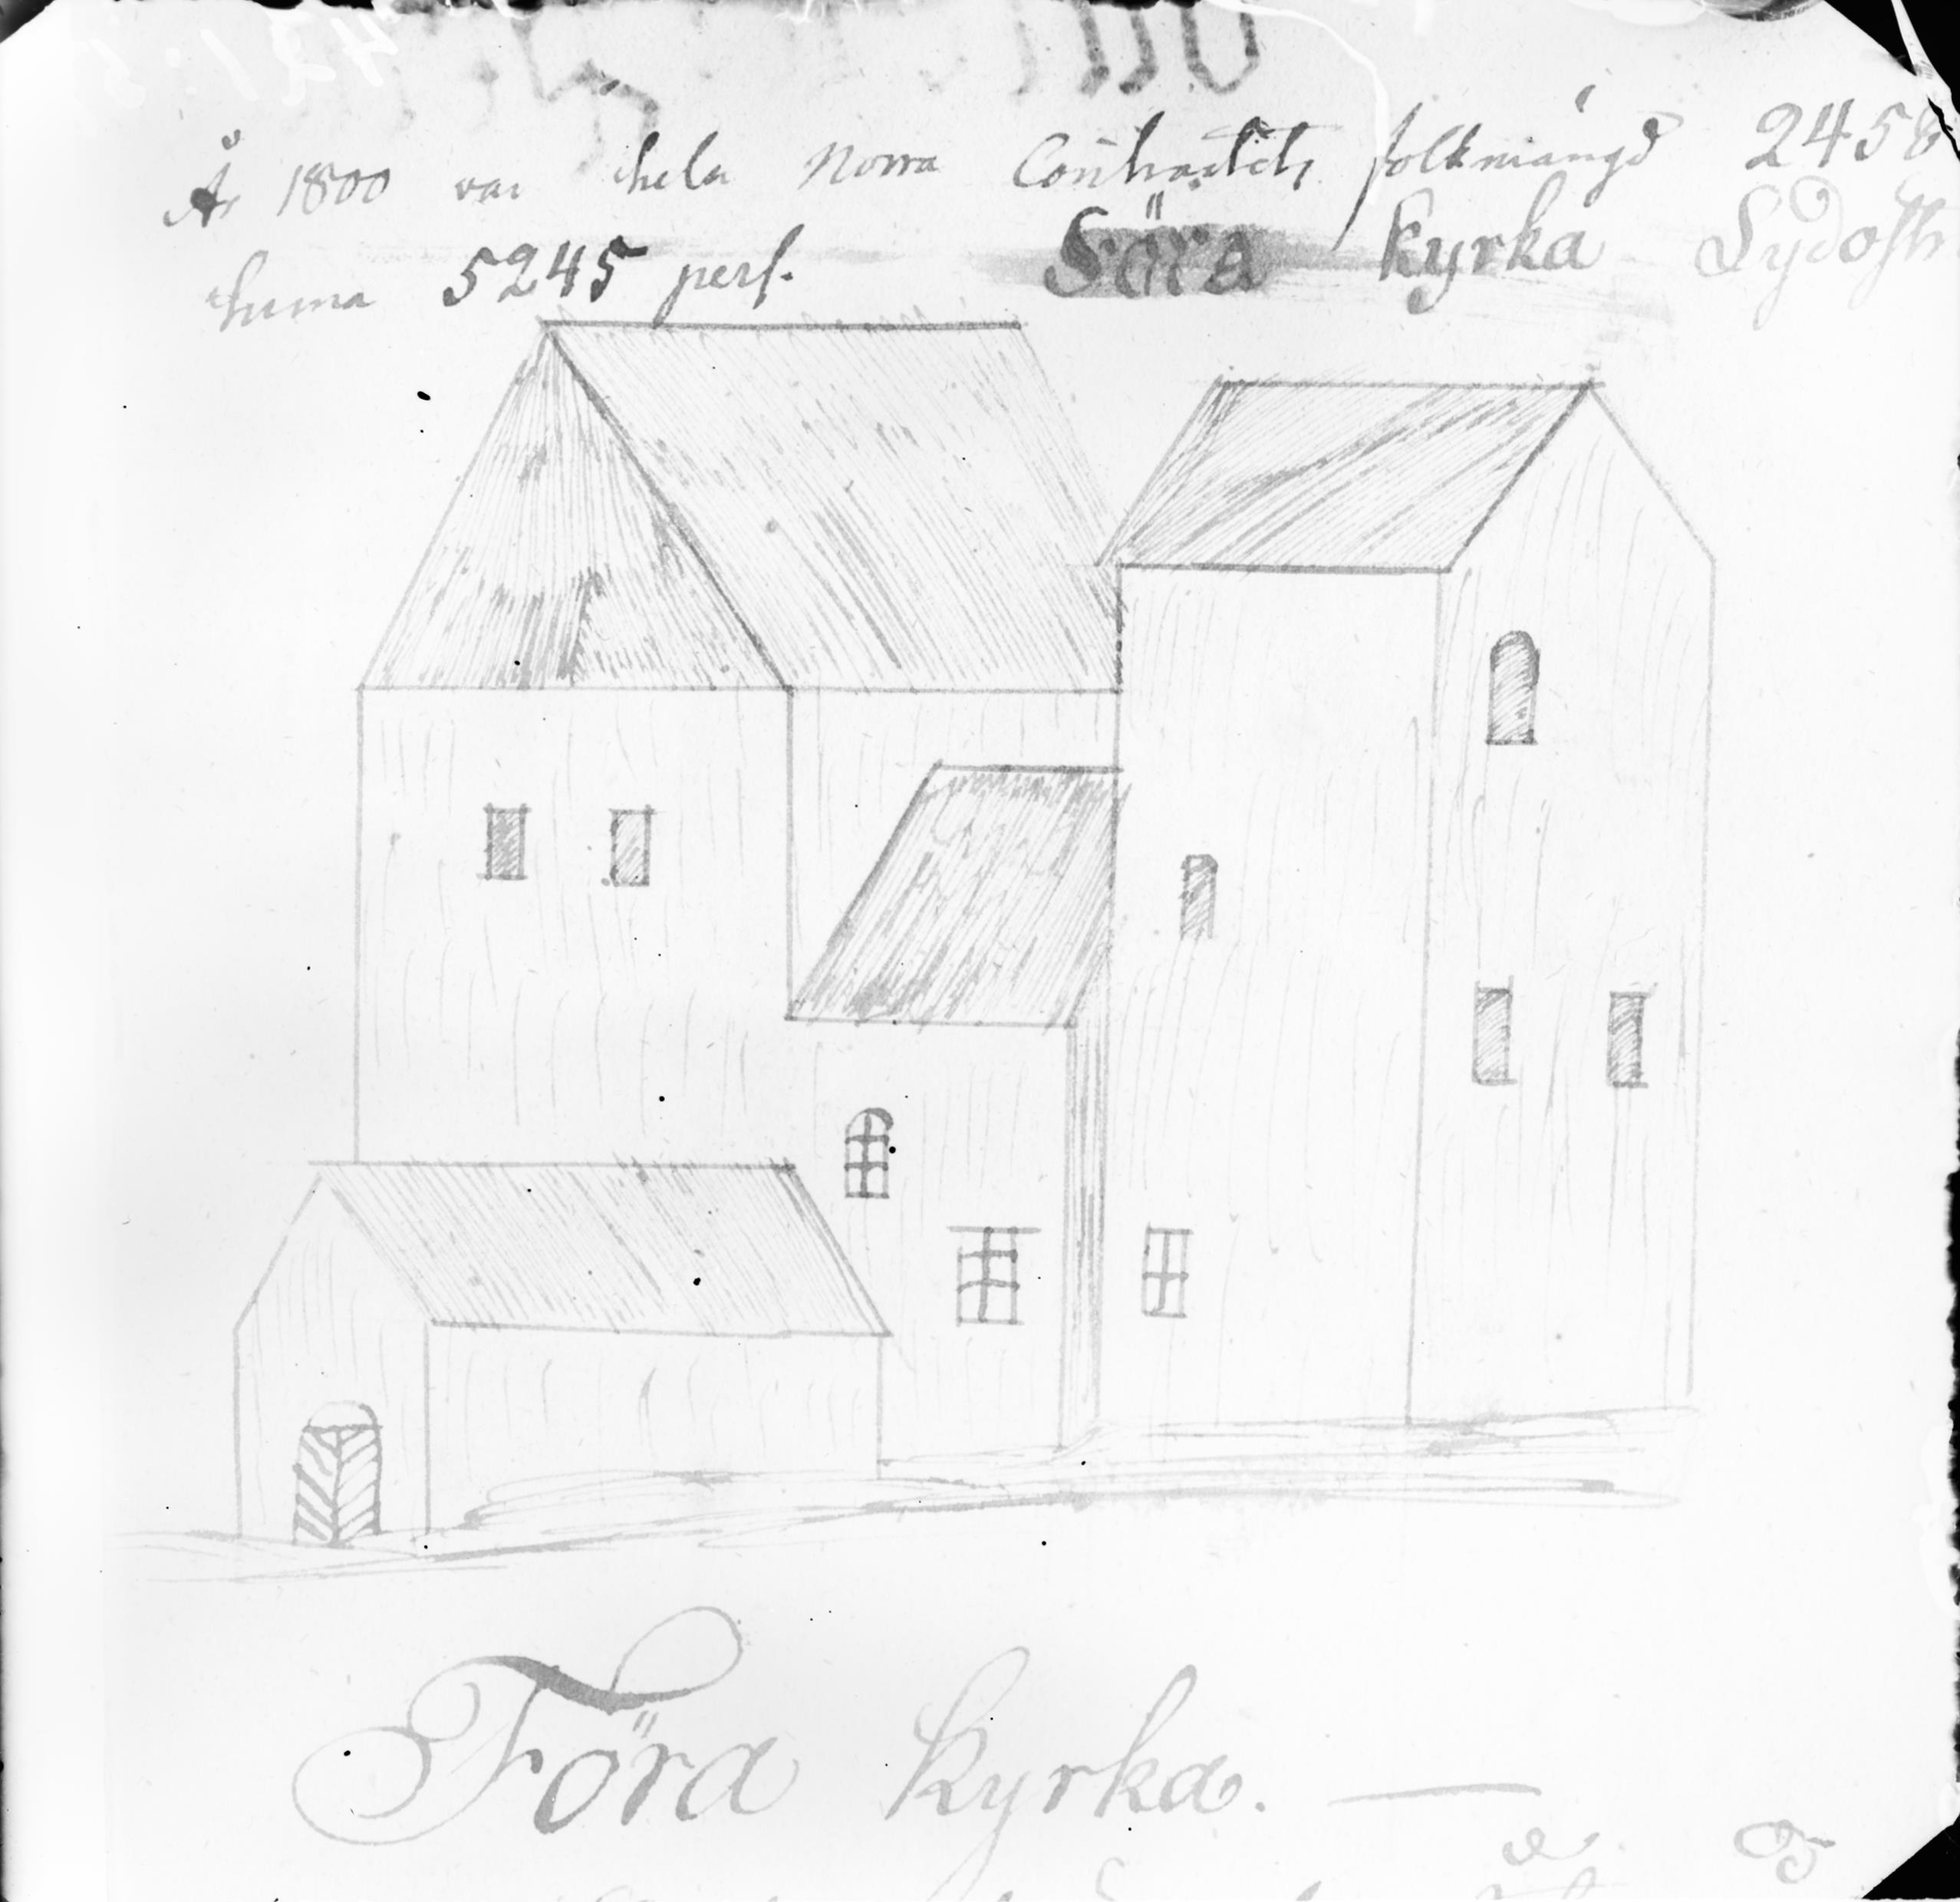 År 1800 var hela Norra Contractets folkmängd 245
suma 5245 pers.
Föra kyrka Sydost
Föra kyrka.